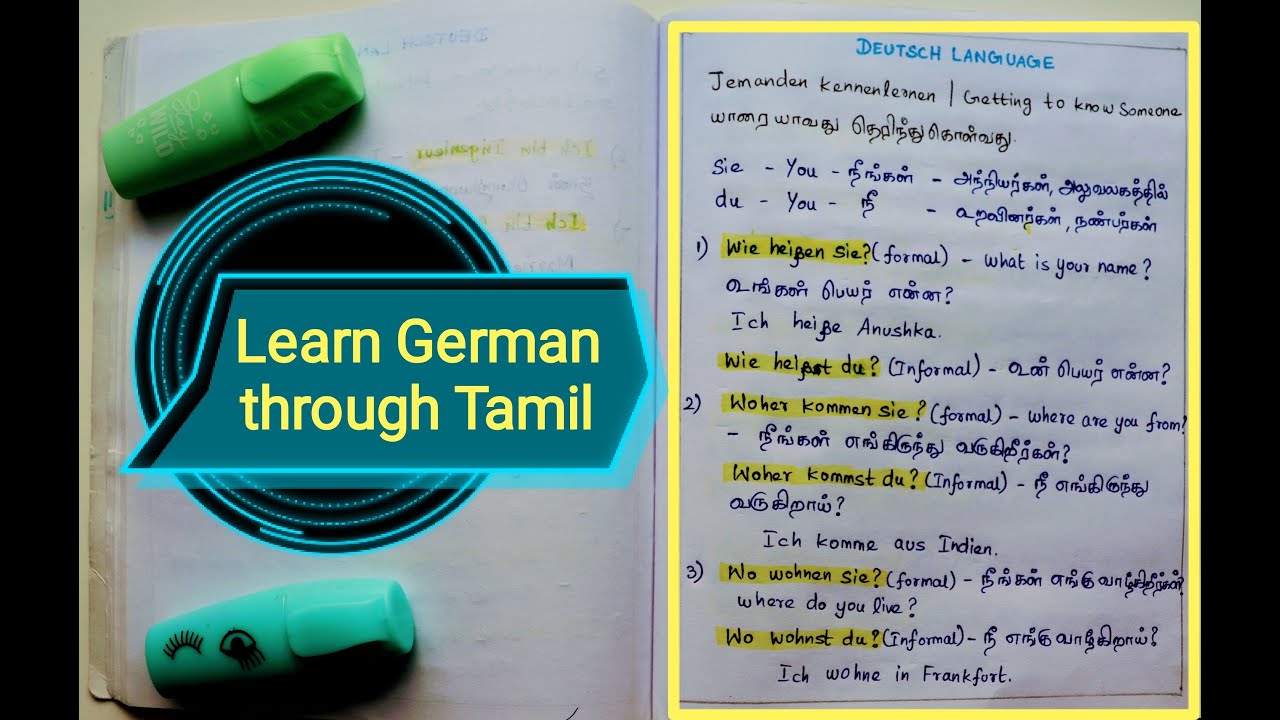 Learn German
through Tamil
DEUTSCH LANGUAGE
Jemanden kennenlernen | Getting to know someone
யாரையாவது தெரிந்து கொள்வது.
Sie - You - நீங்கள் - அந்நியர்கள், அலுவலகத்தில்
du - You - நீ - உறவினர்கள், நண்பர்கள்
1) Wie heißen Sie? (formal) - what is your name?
உங்கள் பெயர் என்ன?
Ich heiße Anushka.
Wie heißst du? (Informal) - உன் பெயர் என்ன?
2) Woher kommen sie? (formal) - where are you from?
- நீங்கள் எங்கிருந்து வருகிறீர்கள்?
Woher kommst du? (Informal) - நீ எங்கிருந்து
வருகிறாய்?
Ich komme aus Indien.
3) Wo wohnen sie? (formal) - நீங்கள் எங்கு வாழ்கிறீர்கள்?
where do you live?
Wo wohnst du? (Informal) - நீ எங்கு வாழ்கிறாய்?
Ich wohne in Frankfort.
DEUTSCH LAN
Ich bin Ingenieur
Ich bin
WILD